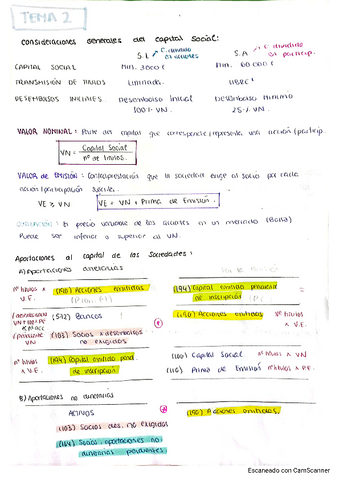 TEMA 2
Consideraciones generales del capital social:
S.L C. dividido en acciones S.A C. dividido en particip.
CAPITAL SOCIAL Min. 3000 € Min. 60.000 €
TRANSMISIÓN DE TITULOS Limitada. LIBRE
DESEMBOLSOS INICIALES Desembolso inicial Desembolso mínimo
100% VN 25% VN.
VALOR NOMINAL: Parte del capital que corresponde/representa una acción/particip.
VN = Capital Social
nº de titulos.
VALOR DE EMISIÓN: Contraprestación que la sociedad exige al socio por cada
acción/participación
VE ≥ VN VE = VN + Prima de Emisión.
El precio de las acciones en un mercado (Bolsa)
Puede ser inferior o superior al VN.
Aportaciones al capital de las Sociedades:
A) Aportaciones dinerarias
nº titulos x V.E. (190) Acciones emitidas (194) Capital emitido pendiente
de inscripción
(572) Bancos (190) Acciones emitidas nº titulos x V.E.
VN (103) Socios x desembolsos
no exigidos
nº titulos x V.E. (194) Capital emitido pend. (100) Capital Social nº titulos x VN
de inscripción (110) Prima de Emisión nº titulos x P.E.
B) Aportaciones no dinerarias
ACTIVOS (190) Acciones emitidas.
(103) Socios des. no exigidos
(104) Socios aportaciones no
dinerarias pendientes
Escaneado con CamScanner